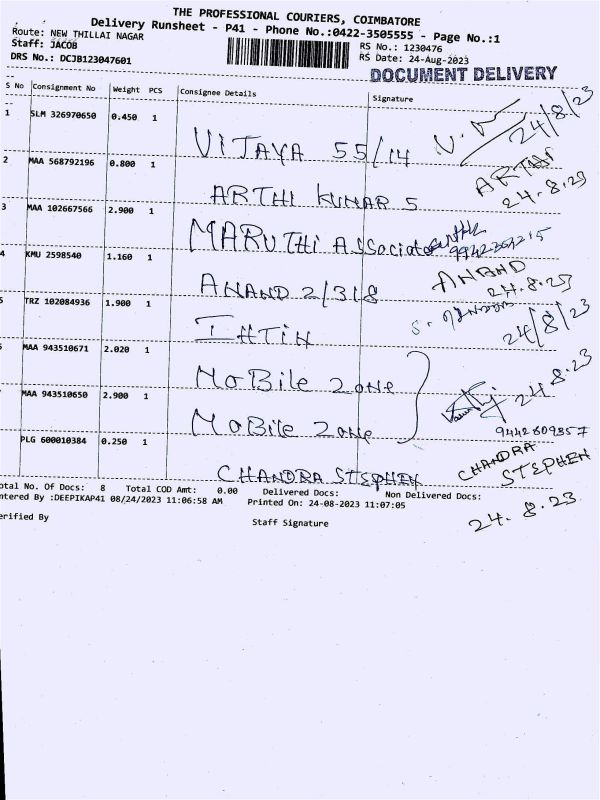 THE PROFESSIONAL COURIERS, COIMBATORE
Delivery Runsheet - P41 - Phone No.:0422-3505555 - Page No.:1
Route: NEW THILLAI NAGAR
RS No.: 1230476
Staff: JACOB
RS Date: 24-Aug-2023
DRS No.: DCJB123047601
DOCUMENT DELIVERY
S No Consignment No Weight PCS Consignee Details Signature
1 SLM 326970650 0.450 1
VIJAYA 55/14
24/8/23
2 MAA 568792196 0.800 1
ARTHI KUMAR S
ARTHI
24.8.23
3 MAA 102667566 2.900 1
MARUTHI Associates
9942267215
4 KMU 2598540 1.160 1
ANAND 2/318
ANAND
24.8.23
5 TRZ 102084936 1.900 1
24/8/23
MAA 943510671 2.020 1
MoBile Zone
24.8.23
MAA 943510650 2.900 1
MoBile Zone
9442609857
PLG 600010384 0.250 1
CHANDRA STEPHEN
CHANDRA
STEPHEN
24.8.23
otal No. Of Docs: 8 Total COD Amt: 0.00 Delivered Docs: Non Delivered Docs:
ntered By :DEEPIKAP41 08/24/2023 11:06:58 AM Printed On: 24-08-2023 11:07:05
erified By Staff Signature